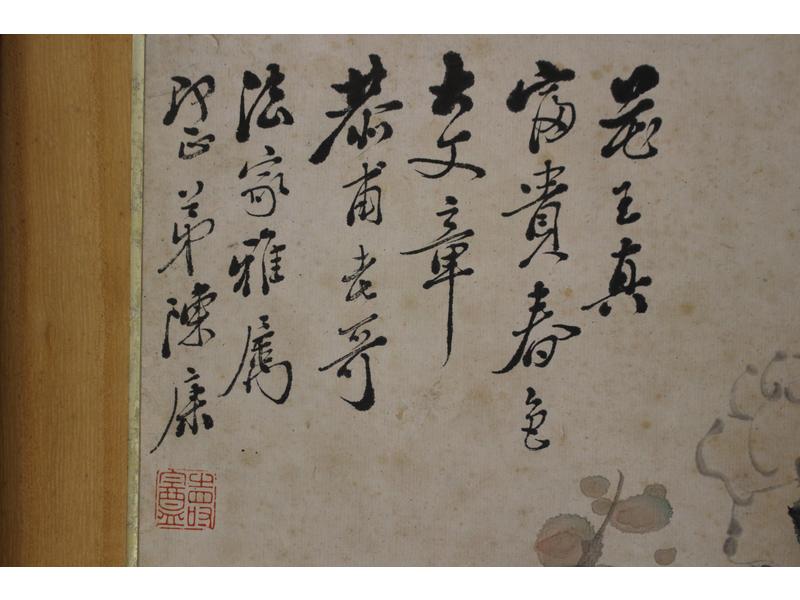 花王真
富貴春色
大文章
恭甫老哥
法家雅属
即正弟陳康